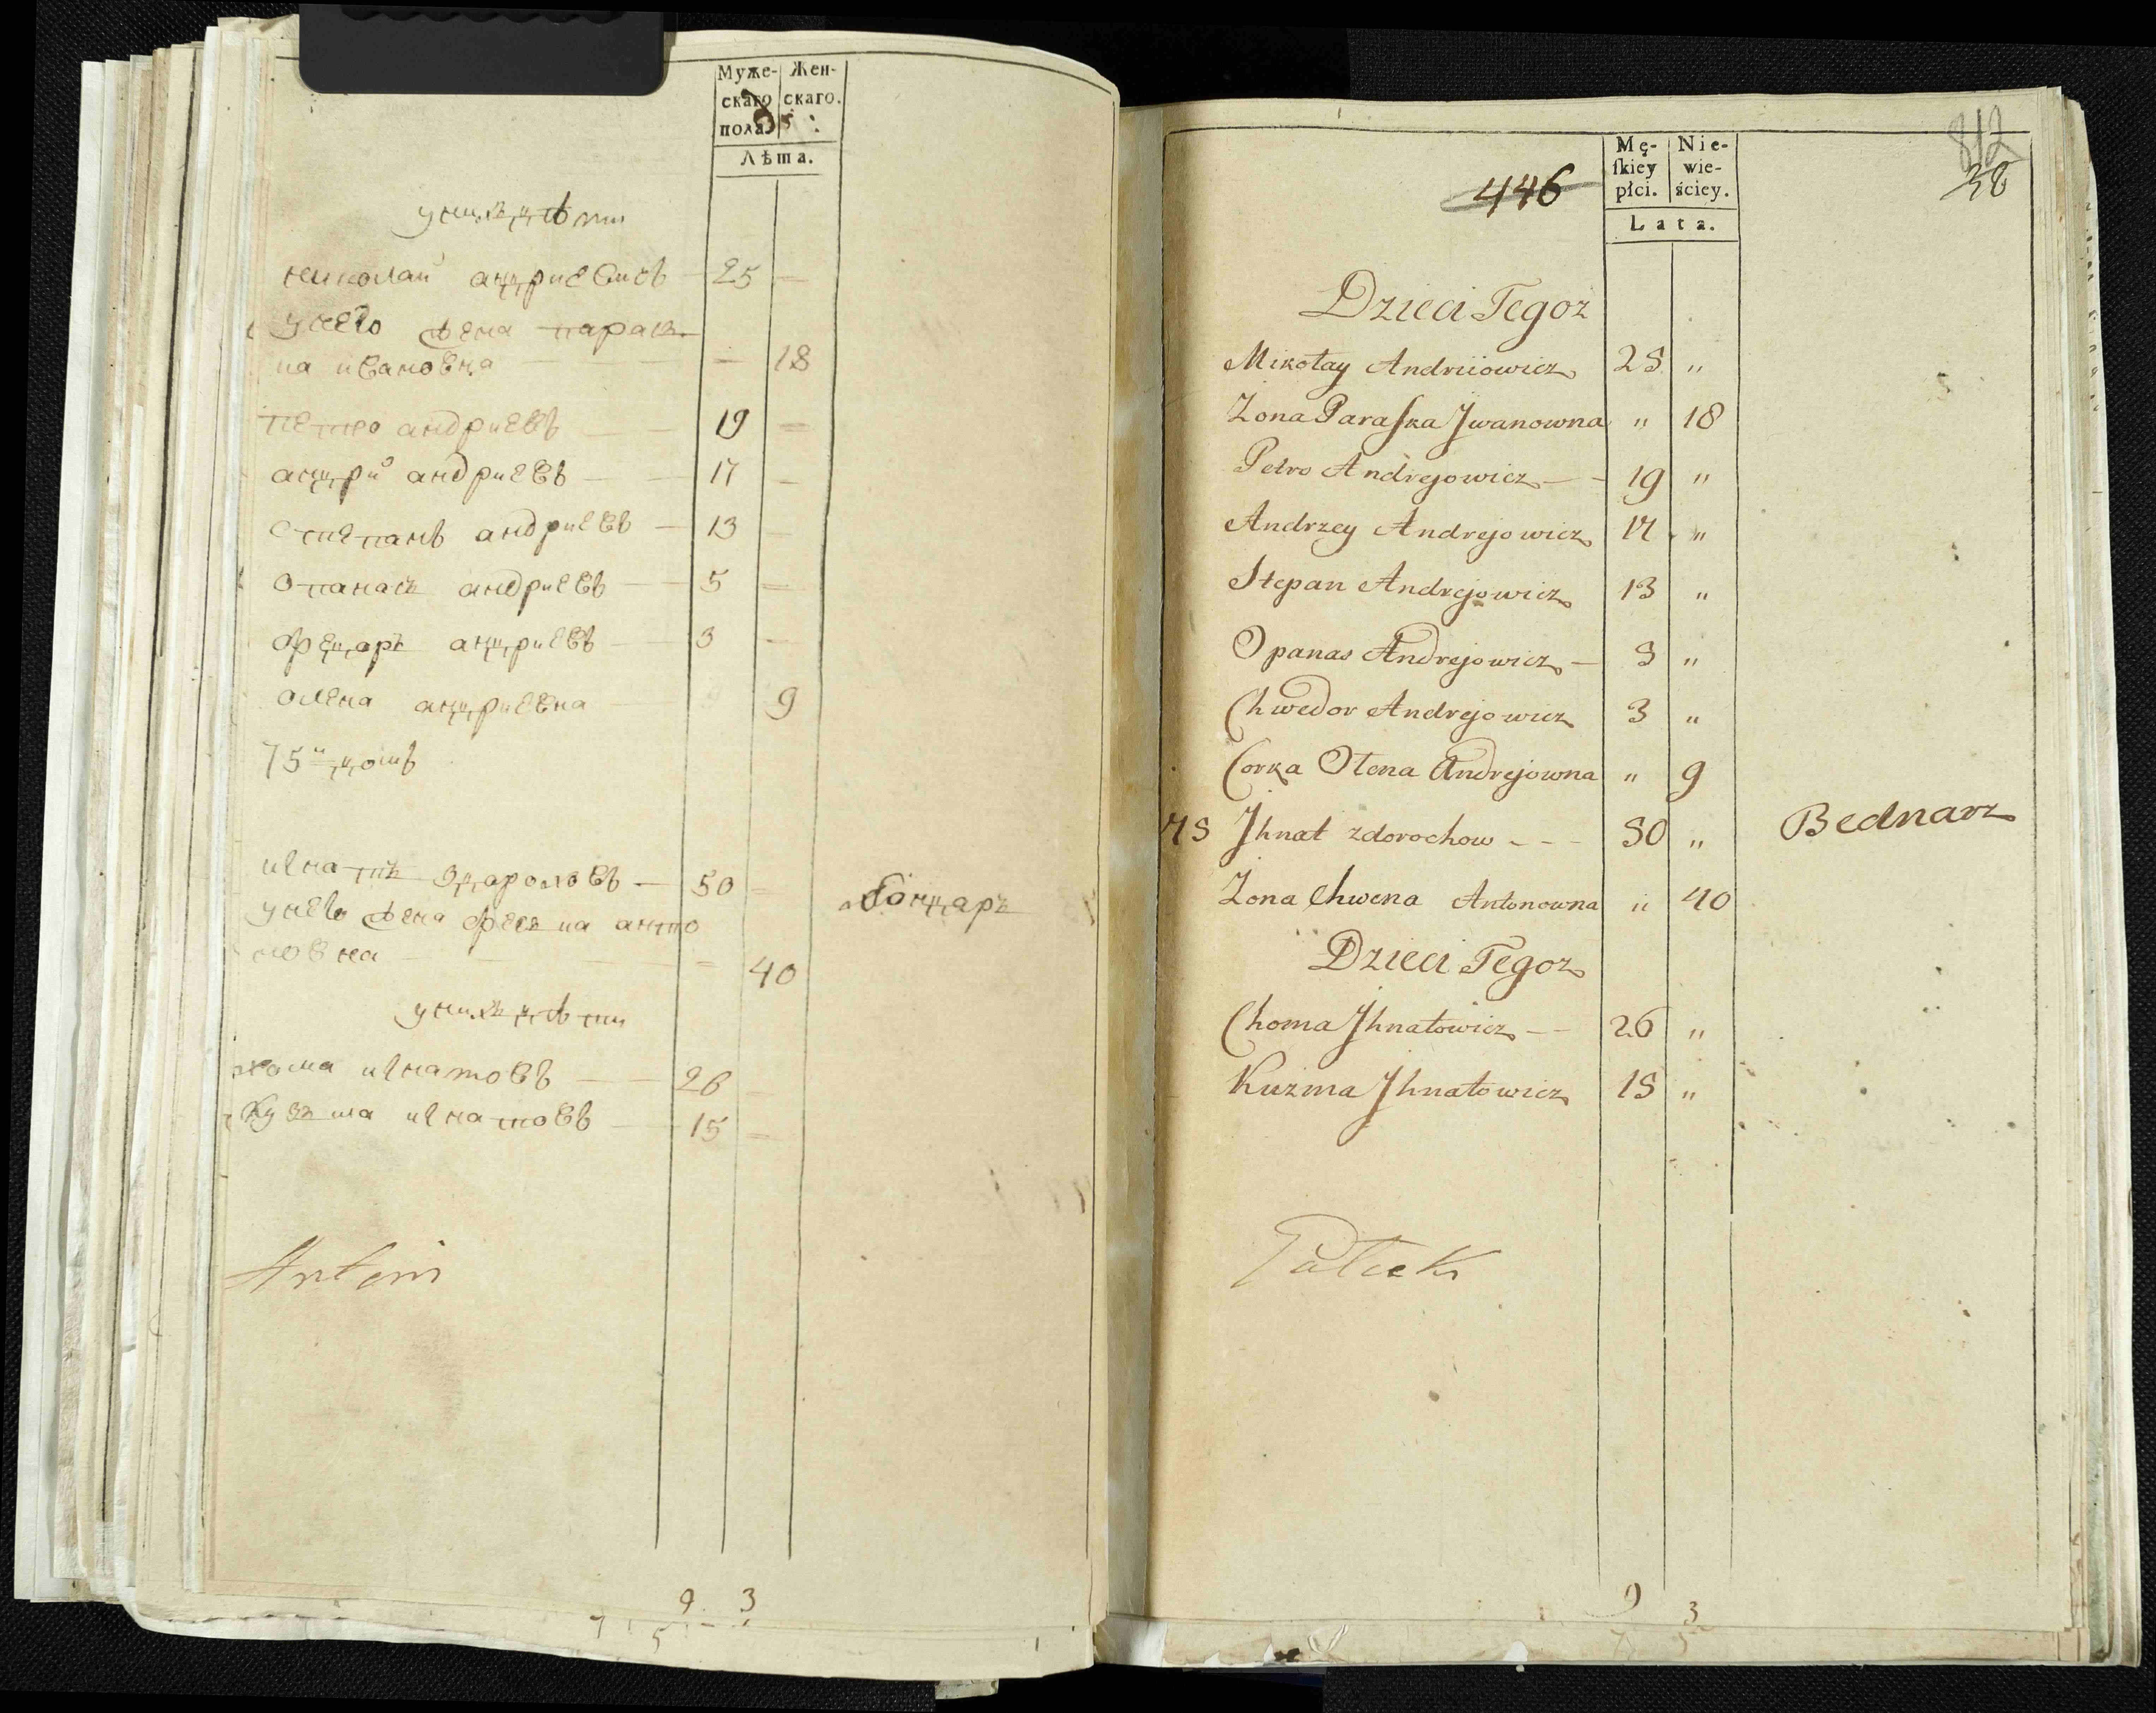 Муже- Жен-
скаго скаго.
пола.
Лѣта.
у нихъ дѣти
николай андриевичъ 25 —
у него жена парась
ка ивановна — 18
петро андриевъ — 19 —
андрий андриевъ — 17 —
степанъ андриевъ — 13 —
опанасъ андриевъ — 5 —
федоръ андриевъ — 3 —
олена андриевна 9
75й домъ
игнатъ здароховъ — 50 — бондаръ
у него жена феська анто
новна — 40
у нихъ дѣти
хома игнатовъ — 26 —
кузьма игнатовъ — 15 —
Antoni
9 3
446
Mę- Nie-
skiey wie-
płci. ściey.
Lata.
38
Dzieci Tegoż
Mikołay Andriiowicz 25 "
Zona Paraska Jwanowna " 18
Petro Andrejowicz — 19 "
Andrzey Andrejowicz 17 "
Stepan Andrejowicz 13 "
Opanas Andrejowicz — 5 "
Chwedor Andrejowicz 3 "
Corka Olena Andrejowna " 9
75 Jhnat zdorochow - - - 50 " Bednarz
Zona Chwena Antonowna " 40
Dzieci Tegoz
Choma Jhnatowicz — 26 "
Kuzma Jhnatowicz 15 "
9 3